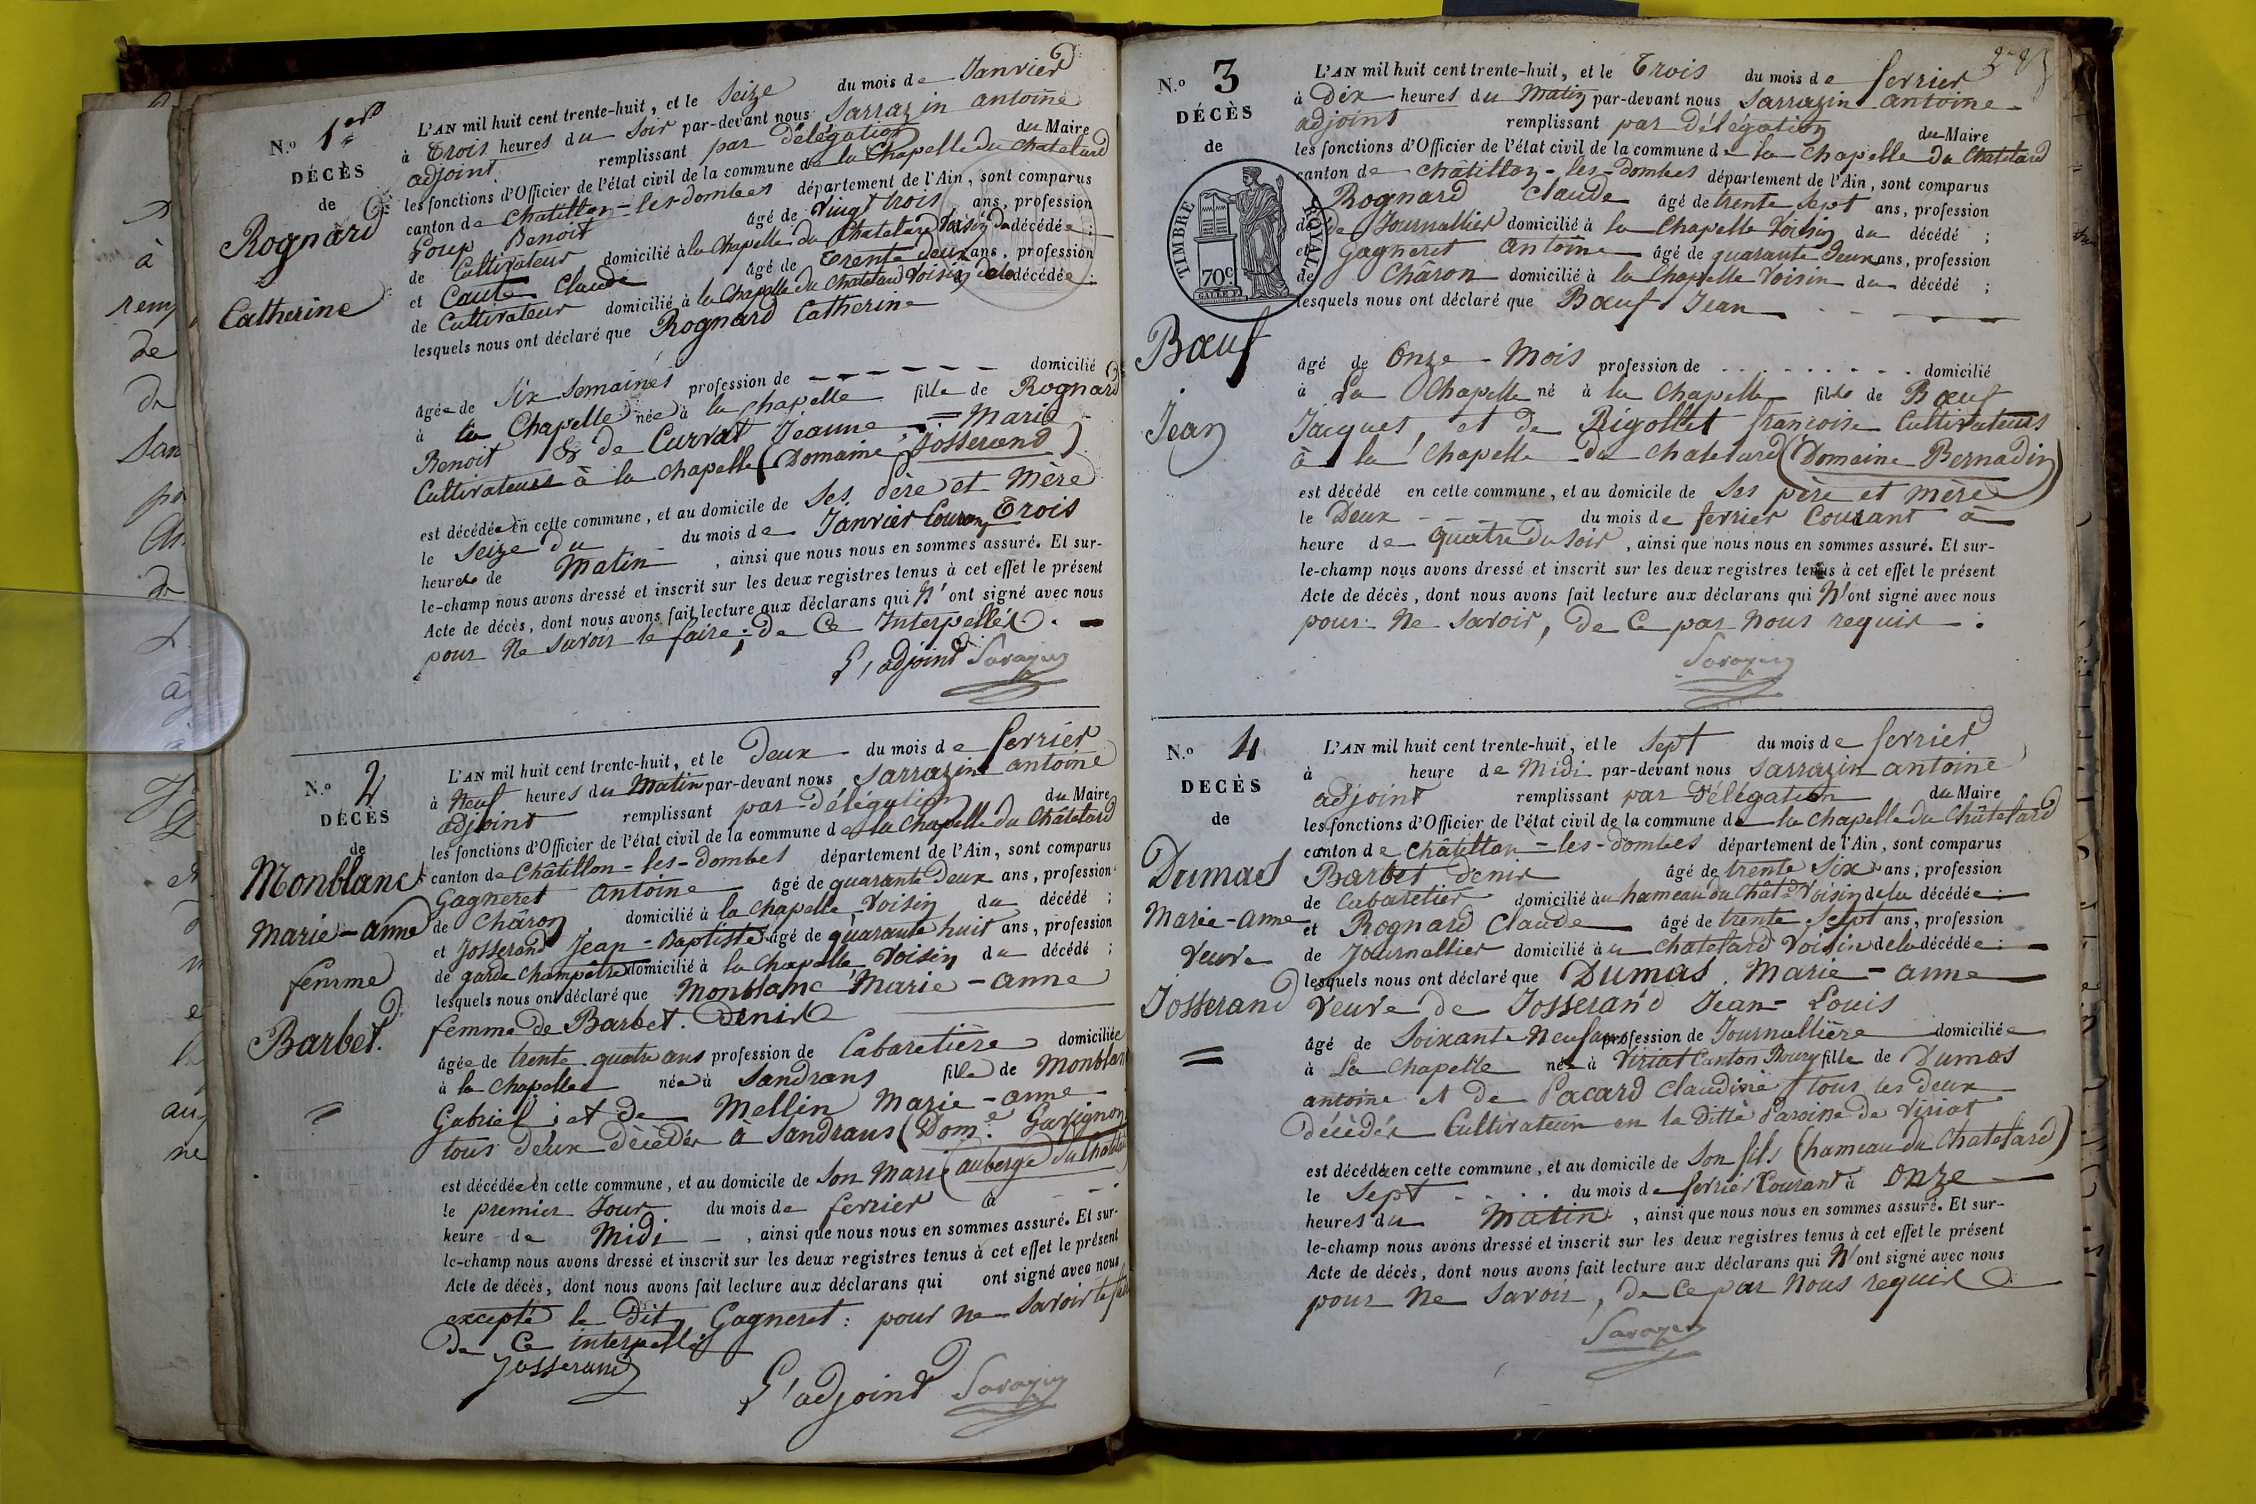 N.º 1er
DÉCÈS
de
Rognard
Catherine
L'AN mil huit cent trente-huit, et le Seize du mois de Janvier
à Trois heures du Soir par-devant nous Sarrazin antoine
adjoint remplissant par délégation du Maire
les fonctions d'Officier de l'état civil de la commune de la Chapelle du Chatelard
canton de Chatillon-les-dombes département de l'Ain, sont comparus
Loup Benoit âgé de Vingt trois ans, profession
de Cultivateur domicilié à la Chapelle du Chatelard Voisin de la décédée ;
et Caute Claude âgé de Trente deux ans, profession
de Cultivateur domicilié à la Chapelle du Chatelard Voisin de la décédée ;
lesquels nous ont déclaré que Rognard Catherine
âgée de Six Semaines profession de - - - - - - domicilié
à la Chapelle née à la Chapelle fille de Rognard
Benoit & de Currat Jeanne = Marie
Cultivateurs à la Chapelle (Domaine Josserand)
est décédée en cette commune, et au domicile de Ses père et Mère
le Seize du du mois de Janvier Courant Trois
heures de Matin , ainsi que nous nous en sommes assuré. Et sur-
le-champ nous avons dressé et inscrit sur les deux registres tenus à cet effet le présent
Acte de décès, dont nous avons fait lecture aux déclarans qui N'ont signé avec nous
pour Ne Savoir le faire ; de Ce Interpellés.
L'adjoint Sarazin
N.º 2
DÉCÈS
de
Monblanc
Marie-anne
femme
Barbet.
L'AN mil huit cent trente-huit, et le Deux du mois de ferrier
à Neuf heures du Matin par-devant nous Sarrazin antoine
adjoint remplissant par délégation du Maire
les fonctions d'Officier de l'état civil de la commune de la Chapelle du Châtelard
canton de Châtillon-les-dombes département de l'Ain, sont comparus
Gagneret Antoine âgé de quarante Deux ans, profession
de Châron domicilié à la Chapelle Voisin du décédé ;
et Josserand Jean-Baptiste âgé de quarante huit ans, profession
de garde Champêtre domicilié à la Chapelle Voisin du décédé ;
lesquels nous ont déclaré que Monblanc Marie-anne
femme de Barbet. Denis
âgée de trente quatre ans profession de Cabaretière domiciliée
à la Chapelle née à Sandrans fille de Monblanc
Gabriel ; et de Mellin Marie-anne
tous deux Décédés à Sandrans (Dom.e Gavignon)
est décédée en cette commune, et au domicile de Son Mari (auberge du Chatelard)
le premier Jour du mois de ferrier à
heure de Midi , ainsi que nous nous en sommes assuré. Et sur-
le-champ nous avons dressé et inscrit sur les deux registres tenus à cet effet le présent
Acte de décès, dont nous avons fait lecture aux déclarans qui ont signé avec nous
excepté le Dit Gagneret : pour ne Savoir le faire
de Ce interpellé
Josserand
L'adjoint Sarazin
N.º 3
DÉCÈS
de
TIMBRE ROYAL
70c
Bœuf
Jean
L'AN mil huit cent trente-huit, et le Trois du mois de ferrier
à Dix heures du Matin par-devant nous Sarrazin antoine
adjoint remplissant par Délégation du Maire
les fonctions d'Officier de l'état civil de la commune de la Chapelle du Chatelard
canton de Châtillon-les-Dombes département de l'Ain, sont comparus
Rognard Claude âgé de trente Sept ans, profession
de Journallier domicilié à la Chapelle Voisin du décédé ;
et Gagneret Antoine âgé de quarante Deux ans, profession
de Charon domicilié à la Chapelle Voisin du décédé ;
lesquels nous ont déclaré que Bœuf Jean
âgé de Onze Mois profession de . . . . . . . . domicilié
à La Chapelle né à la Chapelle fils de Bœuf
Jacques, et de Rigollet francoise Cultivateurs
à la Chapelle du Chatelard (Domaine Bernadin)
est décédé en cette commune, et au domicile de Ses père et mère
le Deux du mois de ferrier Courant à
heure de quatre du Soir , ainsi que nous nous en sommes assuré. Et sur-
le-champ nous avons dressé et inscrit sur les deux registres tenus à cet effet le présent
Acte de décès, dont nous avons fait lecture aux déclarans qui N'ont signé avec nous
pour Ne Savoir, de Ce par Nous requis.
Sarazin
N.º 4
DECÈS
de
Dumas
Marie-anne
Veuve
Josserand
L'AN mil huit cent trente-huit, et le Sept du mois de ferrier
à heure de Midi par-devant nous Sarrazin antoine
adjoint remplissant par Délégation du Maire
les fonctions d'Officier de l'état civil de la commune de la Chapelle du Châtelard
canton de Châtillon-les-dombes département de l'Ain, sont comparus
Barbet Denis âgé de trente Six ans, profession
de Cabaretier domicilié au hameau du Chât.d Voisin de la décédée ;
et Rognard Claude âgé de trente Sept ans, profession
de Journallier domicilié à u Chatelard Voisin de la décédée ;
lesquels nous ont déclaré que Dumas Marie-anne
Veuve de Josserand Jean-Louis
âgé de Soixante Neuf ans profession de Journallière domiciliée
à La Chapelle née à Viriat Canton Bourg fille de Dumas
antoine et de Pacard Claudine tous les deux
décèdés Cultivateurs en la Ditte Paroisse de Viriat
est décédée en cette commune, et au domicile de Son fils (hameau du Chatelard)
le Sept du mois de ferrier Courant à Onze
heures du Matin , ainsi que nous nous en sommes assuré. Et sur-
le-champ nous avons dressé et inscrit sur les deux registres tenus à cet effet le présent
Acte de décès, dont nous avons fait lecture aux déclarans qui N'ont signé avec nous
pour Ne Savoir, de Ce par Nous requis
Sarazin